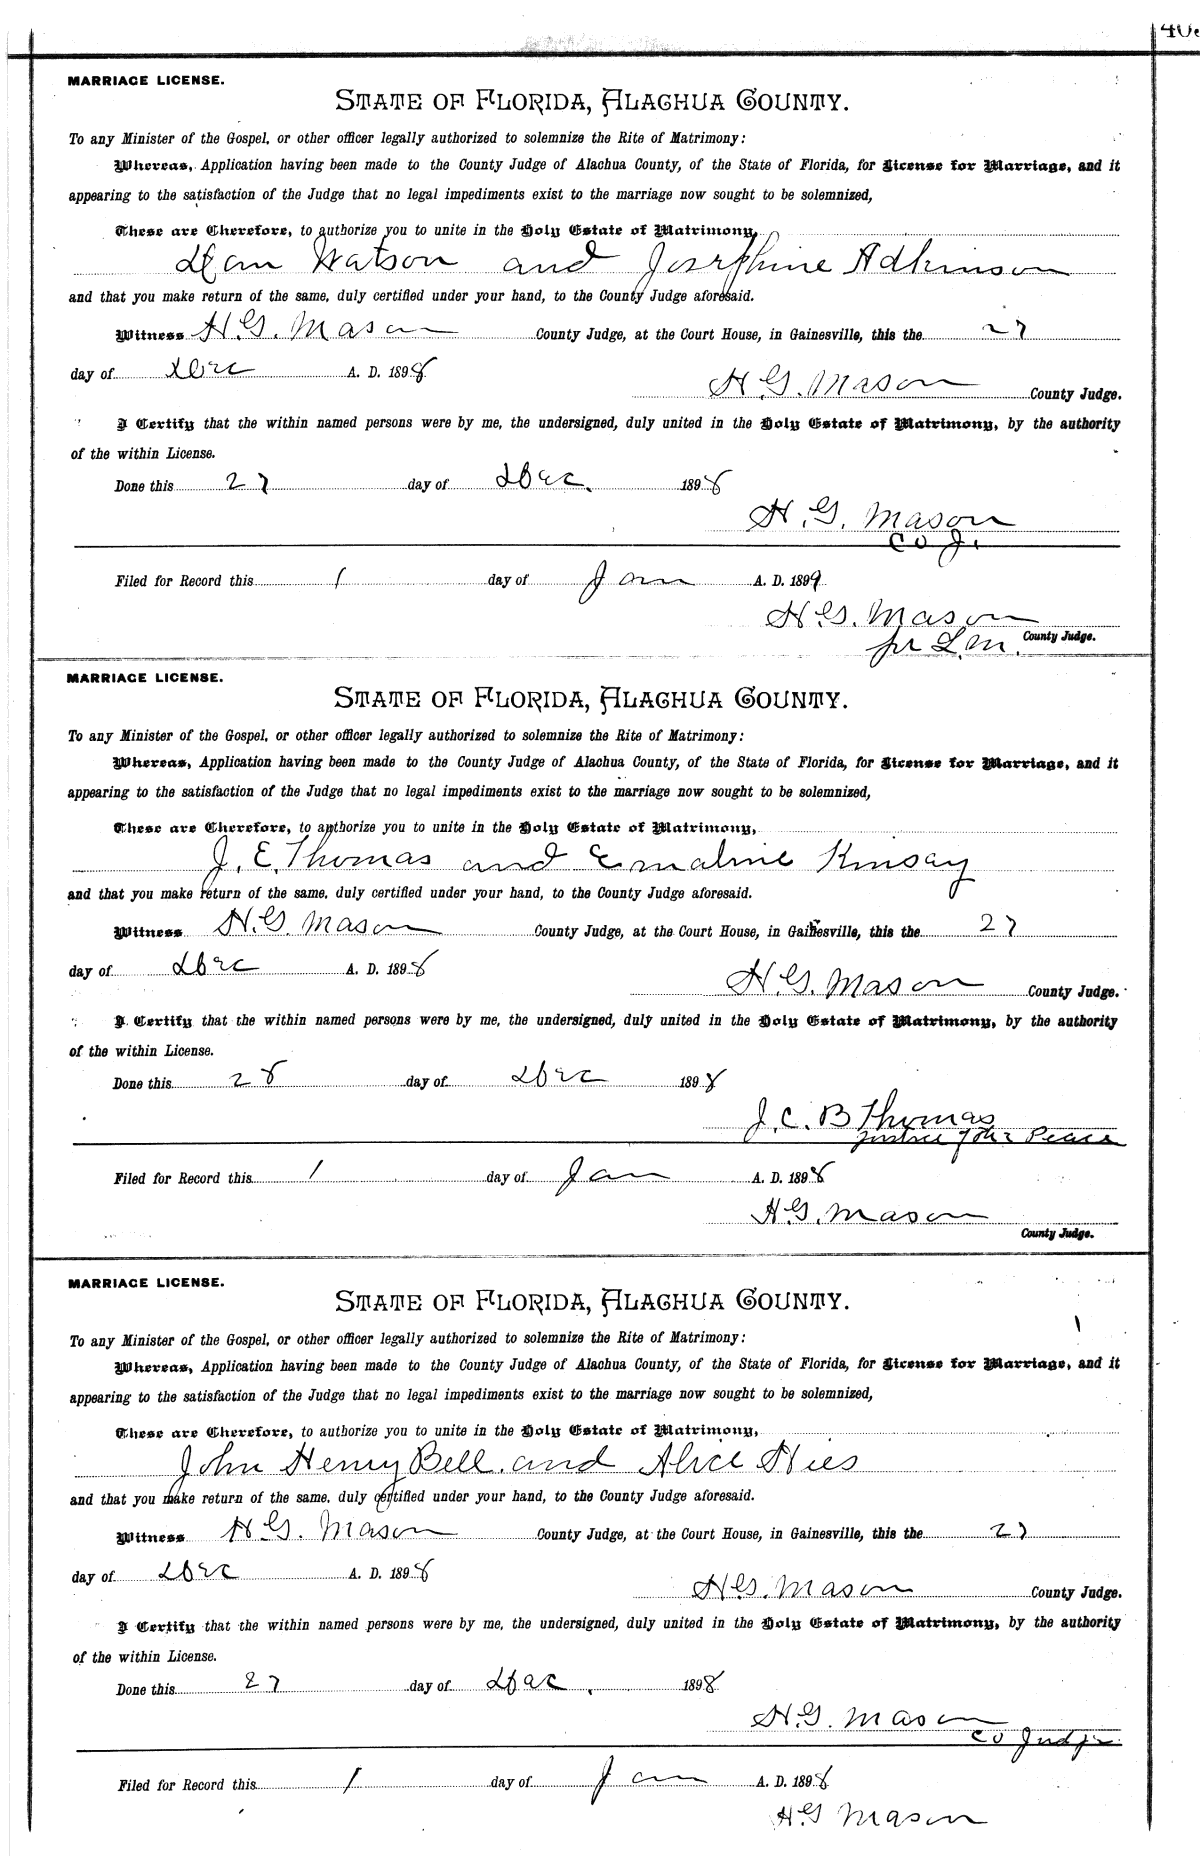 MARRIAGE LICENSE.
STATE OF FLORIDA, ALACHUA COUNTY.
To any Minister of the Gospel, or other officer legally authorized to solemnize the Rite of Matrimony:
Whereas, Application having been made to the County Judge of Alachua County, of the State of Florida, for License for Marriage, and it
appearing to the satisfaction of the Judge that no legal impediments exist to the marriage now sought to be solemnized,
These are Therefore, to authorize you to unite in the Holy Estate of Matrimony,
Watson and Josephine Adkinson
and that you make return of the same, duly certified under your hand, to the County Judge aforesaid.
Witness H.G. Mason County Judge, at the Court House, in Gainesville, this the 27
day of Dec A. D. 1898
H.G. Mason County Judge.
I Certify that the within named persons were by me, the undersigned, duly united in the Holy Estate of Matrimony, by the authority
of the within License.
Done this 27 day of Dec. 1898
H.G. Mason
Co J.
Filed for Record this 1 day of Jan A. D. 1899
H.G. Mason
County Judge.
pr L.M.
MARRIAGE LICENSE.
STATE OF FLORIDA, ALACHUA COUNTY.
To any Minister of the Gospel, or other officer legally authorized to solemnize the Rite of Matrimony:
Whereas, Application having been made to the County Judge of Alachua County, of the State of Florida, for License for Marriage, and it
appearing to the satisfaction of the Judge that no legal impediments exist to the marriage now sought to be solemnized,
These are Therefore, to authorize you to unite in the Holy Estate of Matrimony,
J. E. Thomas and Emaline Kinsay
and that you make return of the same, duly certified under your hand, to the County Judge aforesaid.
Witness H.G. Mason County Judge, at the Court House, in Gainesville, this the 27
day of Dec A. D. 1898
H.G. Mason County Judge.
I Certify that the within named persons were by me, the undersigned, duly united in the Holy Estate of Matrimony, by the authority
of the within License.
Done this 28 day of Dec 1898
J. C. B Thomas
Justice of the Peace
Filed for Record this 1 day of Jan A. D. 1898
H.G. Mason
County Judge.
MARRIAGE LICENSE.
STATE OF FLORIDA, ALACHUA COUNTY.
To any Minister of the Gospel, or other officer legally authorized to solemnize the Rite of Matrimony:
Whereas, Application having been made to the County Judge of Alachua County, of the State of Florida, for License for Marriage, and it
appearing to the satisfaction of the Judge that no legal impediments exist to the marriage now sought to be solemnized,
These are Therefore, to authorize you to unite in the Holy Estate of Matrimony,
John Henry Bell and Alice Hies
and that you make return of the same, duly certified under your hand, to the County Judge aforesaid.
Witness H.G. Mason County Judge, at the Court House, in Gainesville, this the 27
day of Dec A. D. 1898
H.G. Mason County Judge.
I Certify that the within named persons were by me, the undersigned, duly united in the Holy Estate of Matrimony, by the authority
of the within License.
Done this 27 day of Dec. 1898
H.G. Mason
Co Judge
Filed for Record this 1 day of Jan A. D. 1898
H.G Mason